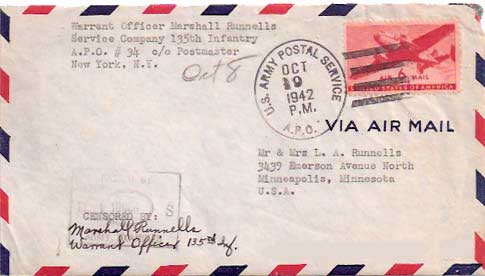 Warrant Officer Marshall Runnells
Service Company 135th Infantry
A.P.O. # 34 c/o Postmaster
New York, N.Y.
Oct 8
U.S. ARMY POSTAL SERVICE
OCT
19
1942
P.M.
A.P.O.
AIR 6 MAIL
UNITED STATES OF AMERICA
VIA AIR MAIL
Mr & Mrs L. A. Runnells
3439 Emerson Avenue North
Minneapolis, Minnesota
U.S.A.
S
CENSORED BY:
Marshall Runnells
Warrant Officer 135th Inf.